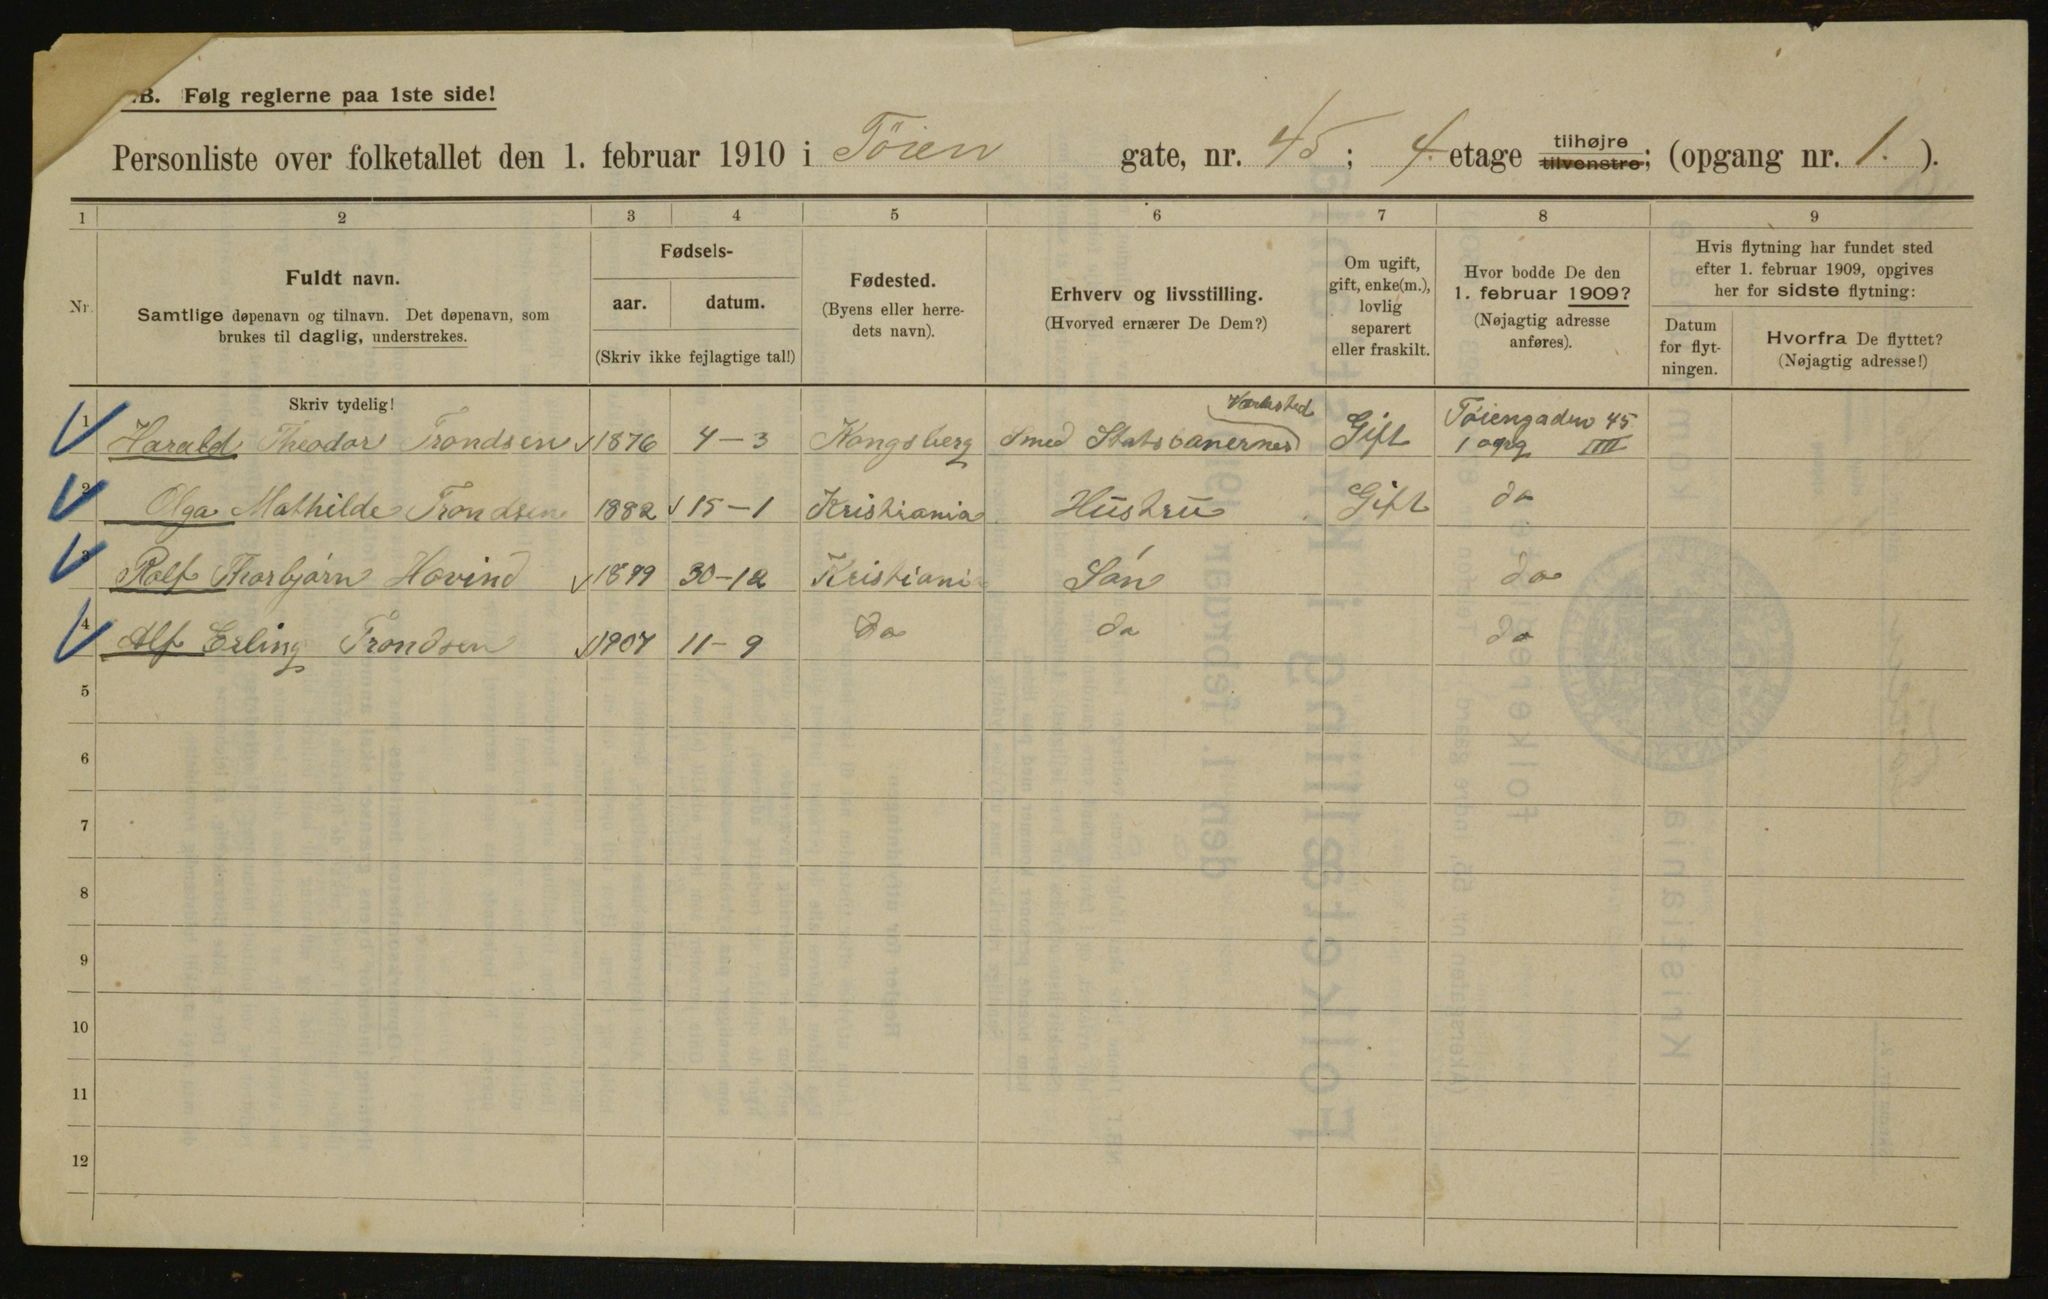 .B. Følg reglerne paa 1ste side!
Personliste over folketallet den 1. februar 1910 i Töien gate, nr. 45; 4. etage tilhøjre tilvenstre; (opgang nr. 1. ).
1 2 3 4 5 6 7 8 9
Nr.
Fuldt navn.
Samtlige døpenavn og tilnavn. Det døpenavn, som
brukes til daglig, understrekes.
Fødsels-
aar. datum.
(Skriv ikke fejlagtige tal!)
Fødested.
(Byens eller herre-
dets navn).
Erhverv og livsstilling.
(Hvorved ernærer De Dem?)
Om ugift,
gift, enke(m.),
lovlig
separert
eller fraskilt.
Hvor bodde De den
1. februar 1909?
(Nøjagtig adresse
anføres).
Hvis flytning har fundet sted
efter 1. februar 1909, opgives
her for sidste flytning:
Datum
for flyt-
ningen.
Hvorfra De flyttet?
(Nøjagtig adresse!)
Skriv tydelig!
1 Harald Theodor Trondsen 1876 4-3 Kongsberg Smed Statsbanernes Værksted Gift Töiengaden 45
1 opg IIII
2 Olga Mathilde Trondsen 1882 15-1 Kristiania Hustru Gift do
3 Rolf Thorbjørn Hovind 1899 30-12 Kristiania Søn do
4 Alf Erling Trondsen 1907 11-9 do do do
5
6
7
8
9
10
11
12